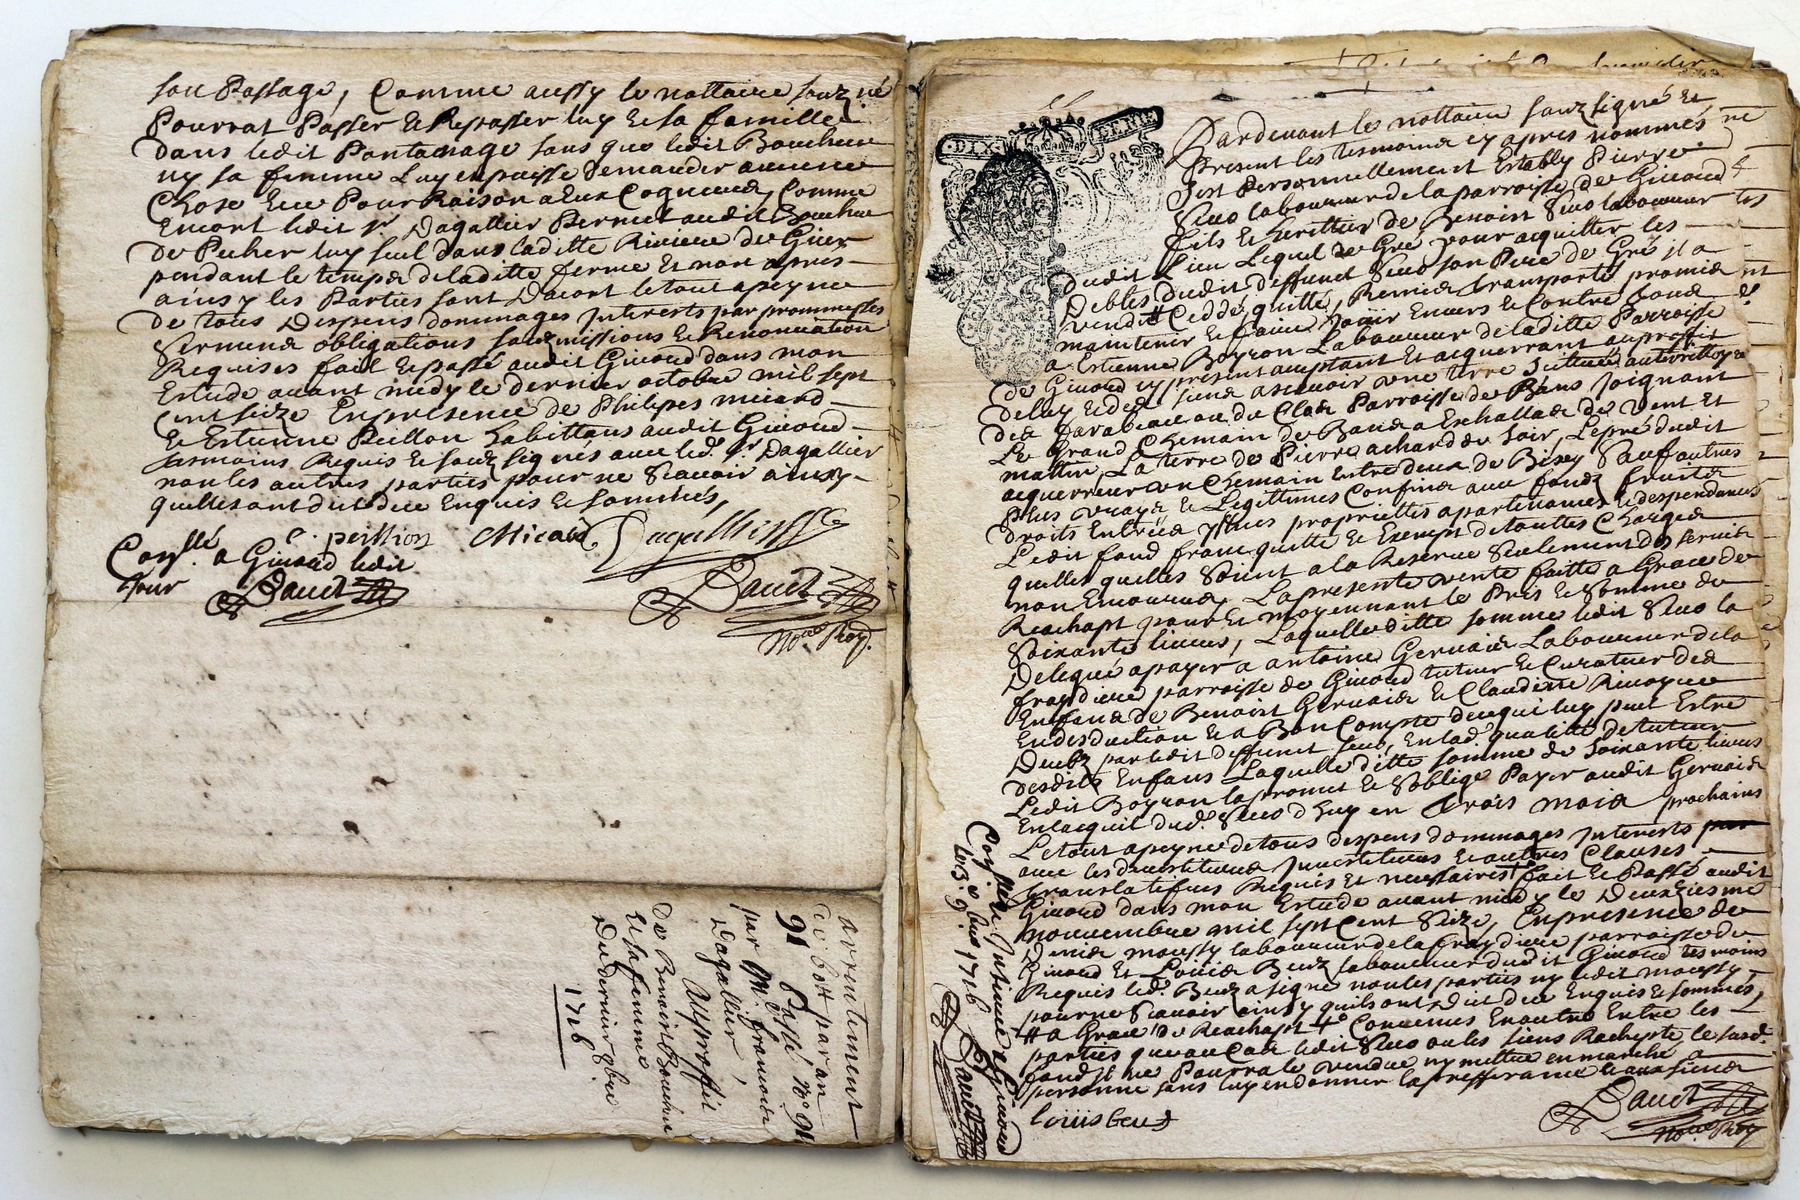 son Passage, Comme aussy le nottaire souz ne
Pourrat Passer et Repasser luy et sa famille
dans ledit Pantanage sans que ledit Boucheu
ny sa femme Luy en puisse demander aucune
Chose pour Raison
Encort ledit Sr Dagallier Permet audit Boucheu
de Pecher luy seul dans laditte Riviere de Gier
pendant le temps de laditte ferme Et non apres
ainsy les Parties sont Dacort le tout a peyne
de tous Despens dommages Interests par prommesses
Serments obligations soubmissions et Renonciation
Requises fait et passé audit Givord dans mon
Estude avant midy le dernier octobre mil sept
Cent seize En presence de Philipes micard
et Estienne Peillon habittans audit Givord
tesmoins Requis et souz signés avec led. Sr Dagallier
non les autres parties pour ne Scavoir ainsy
quilles ont dit de ce Enquis et sommées,
e. peillion Micard Dagallier
Con.llé a Givord ledit
Jour
Dauet
Dauet
No.re Roy.
arrentement
de bott par an
91 Passé No. 91
par Mr. francois
Dagallier,
Au proffit
De Benoist Boucheu
et sa femme
Du dernier 8bre
1716
DIX DENIE
Pardevant le nottaire souz signé et
Present les tesmoins cy apres nommés
fust Personnellement Estably Pierre
Sivo laboureur de la parroisse de Givord
fils et herittier de Benoist Sivo laboureur
dudit Lieu Lequel de Gré pour acquitter les
Debtes dudit deffunct Sivo son Pere de Gré il a
vendu Ceddé quitté, Remis transporté promis
maintenir et faire Jouir Envers et Contre tous
a Estienne Boyron Laboureur de laditte Parroisse
de Givord cy present acceptant Et acquerrant au profit
de luy et des siens ascavoir une terre Scittuée au territoyre
des farabeau ou du Clos Parroisse de Bans Joignant
Le Grand Chemain de Bans a Eschallas de Vent Et
mattin, La terre de Pierre achard de soir, Le pré dudit
acquerreur un Chemain Entre deux de Bizey Sauf autres
Plus vrays et Legittimes Confins avec fondz fruits
Droits Entrées yssues proprietés apartenances et despendances
Ledit fond franc quitte et Exempt de toutes Charges
quelles quelles Soient a la Reserve Seulement des servis
non Encourus, La presente vente faitte a Grace de
Reachapt pour et moyennant le Pris et Somme de
Soixante livres, Laquelle ditte somme ledit Sivo la
Delegué a payer a antoine Gervais Laboureur de la
frondiere parroisse de Givord tutteur et Curateur des
Enfans de Benoist Gervais et Claudine
En desduction et a Bon Compte de ce qui luy peut Estre
Deub par ledit deffunct Sivo, En lad. qualité de tutteur
desdits Enfans Laquelle ditte somme de soixante livres
Ledit Boyron la promet et soblige Payer audit Gervais
En lacquit dud. Sivo dhuy en trois mois prochains
Le tout a peyne de tous despens dommages Interests
avec les devestitures Jnvestitures et autres Clauses
translatifves Requis Et necessaires fait et Passé audit
Givord dans mon Estude avant midy le Deuxiesme
novembre mil sept Cent Seize, En presence de
Denis moussy laboureur de la frondiere parroisse de
Givord Et Loüis laboureur dudit Givord tesmoins
Requis led. a signé non les parties ny ledit moussy
pour ne Scavoir ainsy quils ont dit de ce Enquis et sommés,
# a Grace de Reachapt Convenus En outre Entre les
parties que au Cas ledit Sivo ou les siens Rachepte le susd.
fond Il ne Pourra le vendre ny mettre en marche a
personne sans luy en donner la presfferance et aux siens
Dauet
No.re Roy
Con.llé a Givord
1716
Dauet